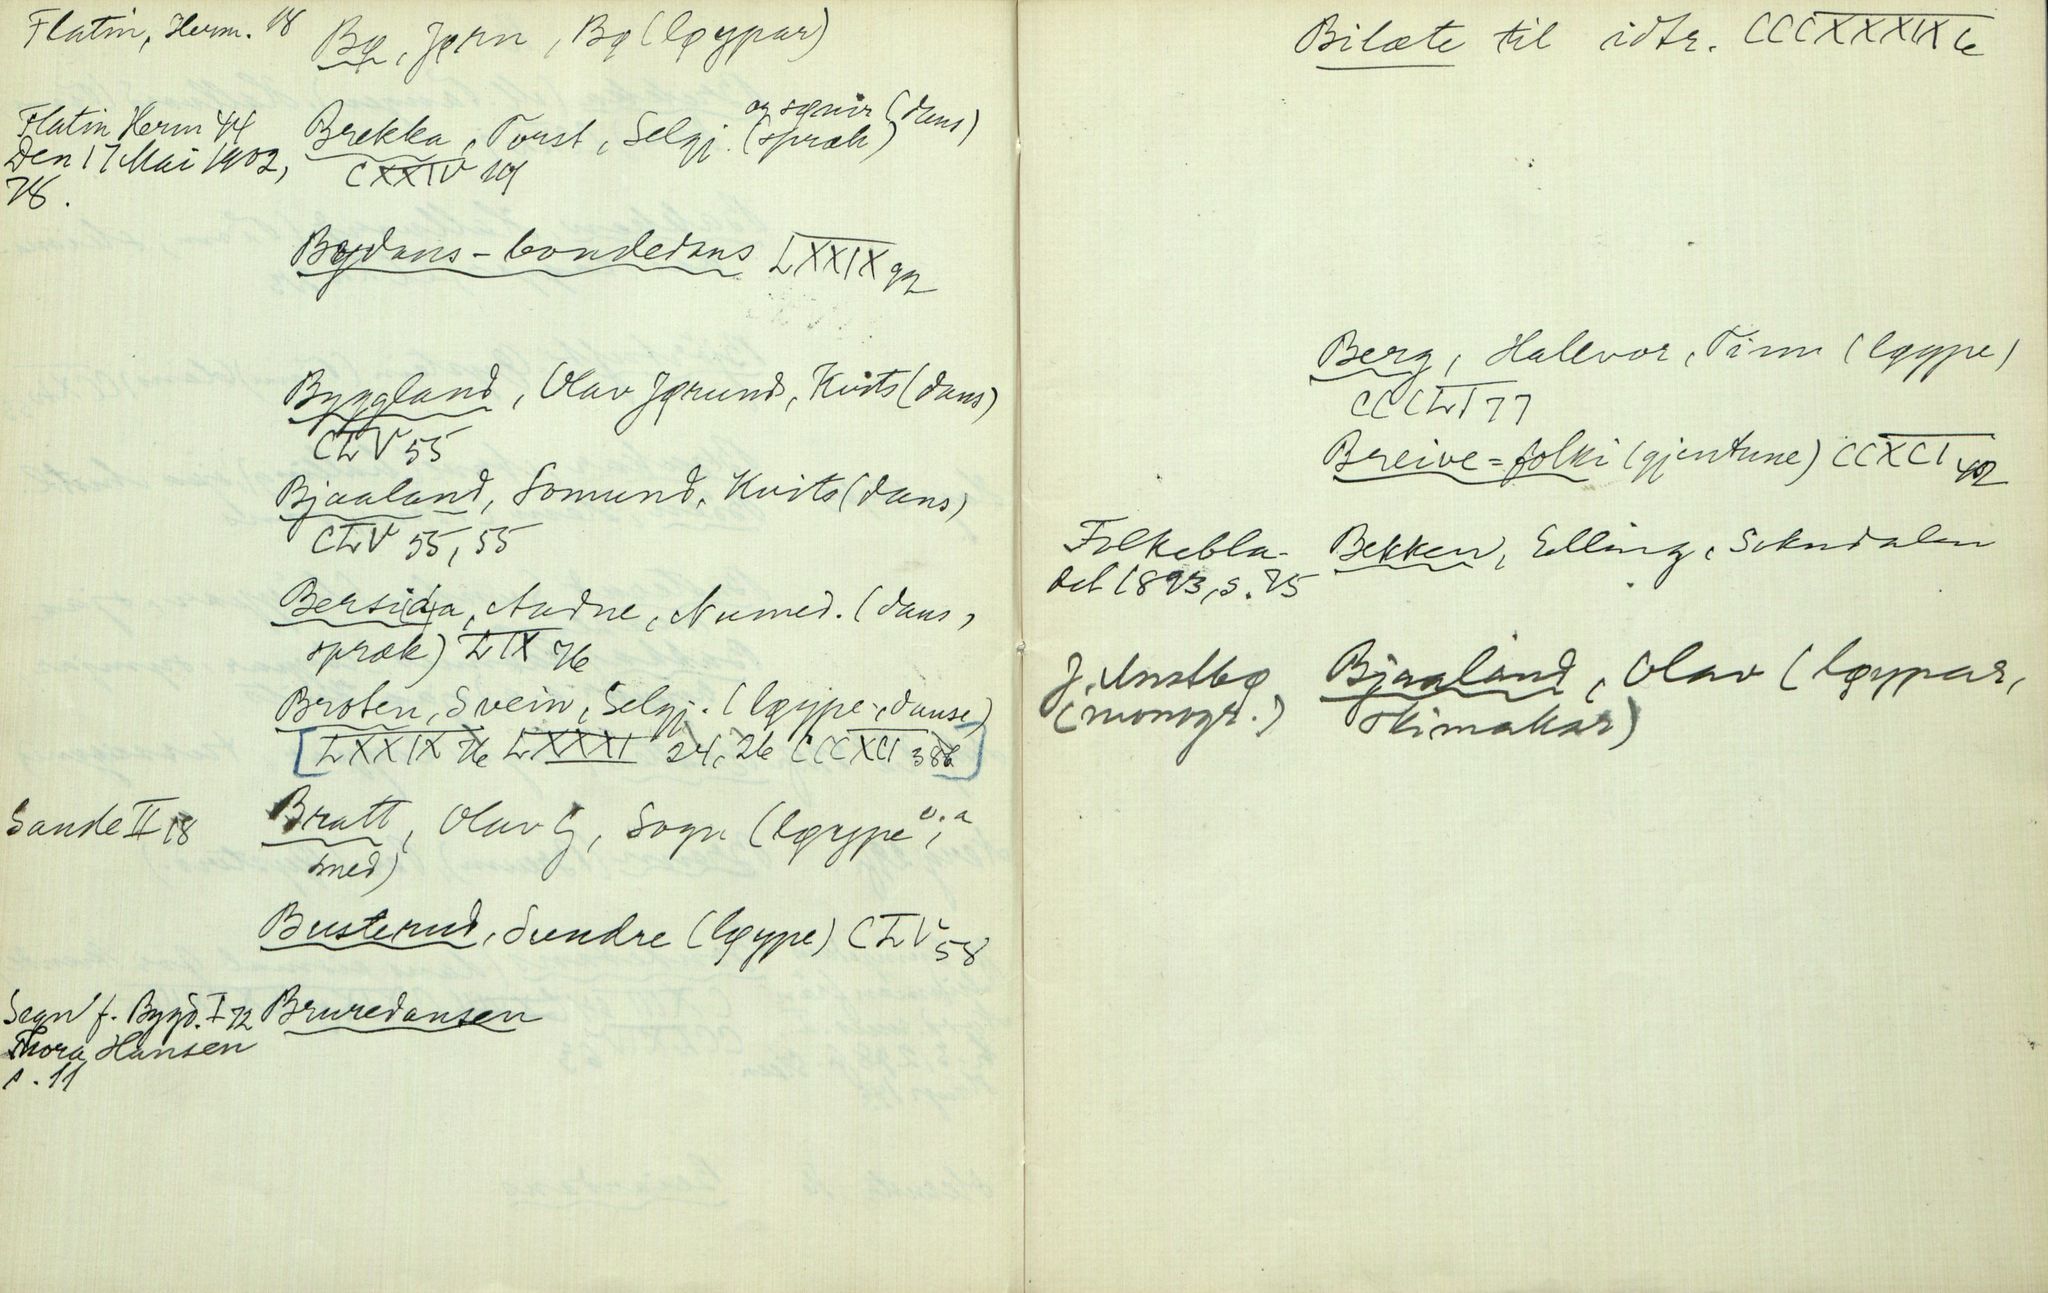 Flatin, Herm. 18 Bø, Jørn, Bø (løypar)
og sønir (dans)
Flatin Herm 44 Brekka, Torst, Selgj. (spræk)
Den 17 Mai 1902, CXXIV 101
78.
Bygdans - bondedans LXXIX 92
Byggland, Olav Jørund, Kvits (dans)
CLV 55
Bjaaland, Somund, Kvits (dans)
CLV 55, 55
Bersida, Aadne, Numed. (dans,
spræk) LIX 76
Broten, Svein, Selgj. (løype-, danse)
[LXXIX 76 LXXXI 24, 26 CCCXCI 386]
Sande II 18 Bratt, Olav G, Sogn (løype o. a
smed)
Busterud, Sundre (løype) CLV 58
Segn f. Bygd. I 72 Bruredansen
Thora Hansen
s. 11
Bilæte til idtr. CCCXXXIX 6
Berg, Halvor, Tinn (løype)
CCCLI 77
Breive=folki (gjentune) CCXCI 42
Folkebla- Bekken, Elling, Sokndalen
det 1893, s. 75
J. Austbø Bjaaland, Olav (løypar,
(monogr.) skimakar)